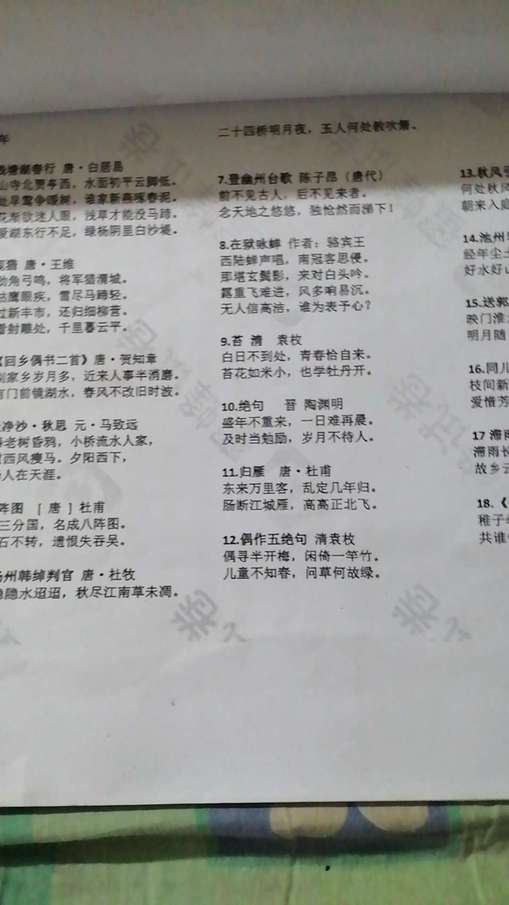 年
钱塘湖春行 唐·白居易
山寺北贾亭西，水面初平云脚低。
处早莺争暖树，谁家新燕啄春泥。
花渐欲迷人眼，浅草才能没马蹄。
爱湖东行不足，绿杨阴里白沙堤。
观猎 唐·王维
劲角弓鸣，将军猎渭城。
枯鹰眼疾，雪尽马蹄轻。
过新丰市，还归细柳营。
看射雕处，千里暮云平。
《回乡偶书二首》唐·贺知章
别家乡岁月多，近来人事半消磨。
有门前镜湖水，春风不改旧时波。
净沙·秋思 元·马致远
老树昏鸦，小桥流水人家，
西风瘦马。夕阳西下，
人在天涯。
阵图 [ 唐 ] 杜甫
三分国，名成八阵图。
石不转，遗恨失吞吴。
扬州韩绰判官 唐·杜牧
隐隐水迢迢，秋尽江南草未凋。
二十四桥明月夜，玉人何处教吹箫。
7.登幽州台歌 陈子昂（唐代）
前不见古人，后不见来者。
念天地之悠悠，独怆然而涕下！
8.在狱咏蝉 作者：骆宾王
西陆蝉声唱，南冠客思侵。
那堪玄鬓影，来对白头吟。
露重飞难进，风多响易沉。
无人信高洁，谁为表予心？
9.苔 清 袁枚
白日不到处，青春恰自来。
苔花如米小，也学牡丹开。
10.绝句 晋 陶渊明
盛年不重来，一日难再晨。
及时当勉励，岁月不待人。
11.归雁 唐·杜甫
东来万里客，乱定几年归。
肠断江城雁，高高正北飞。
12.偶作五绝句 清袁枚
偶寻半开梅，闲倚一竿竹。
儿童不知春，问草何故绿。
13.秋风
何处秋风
朝来入庭
14.池州
经年尘土
好水好山
15.送郭
映门淮
明月随
16.同儿
枝间新
爱惜芳
17 滞雨
滞雨长
故乡云
18.《
稚子
共谁